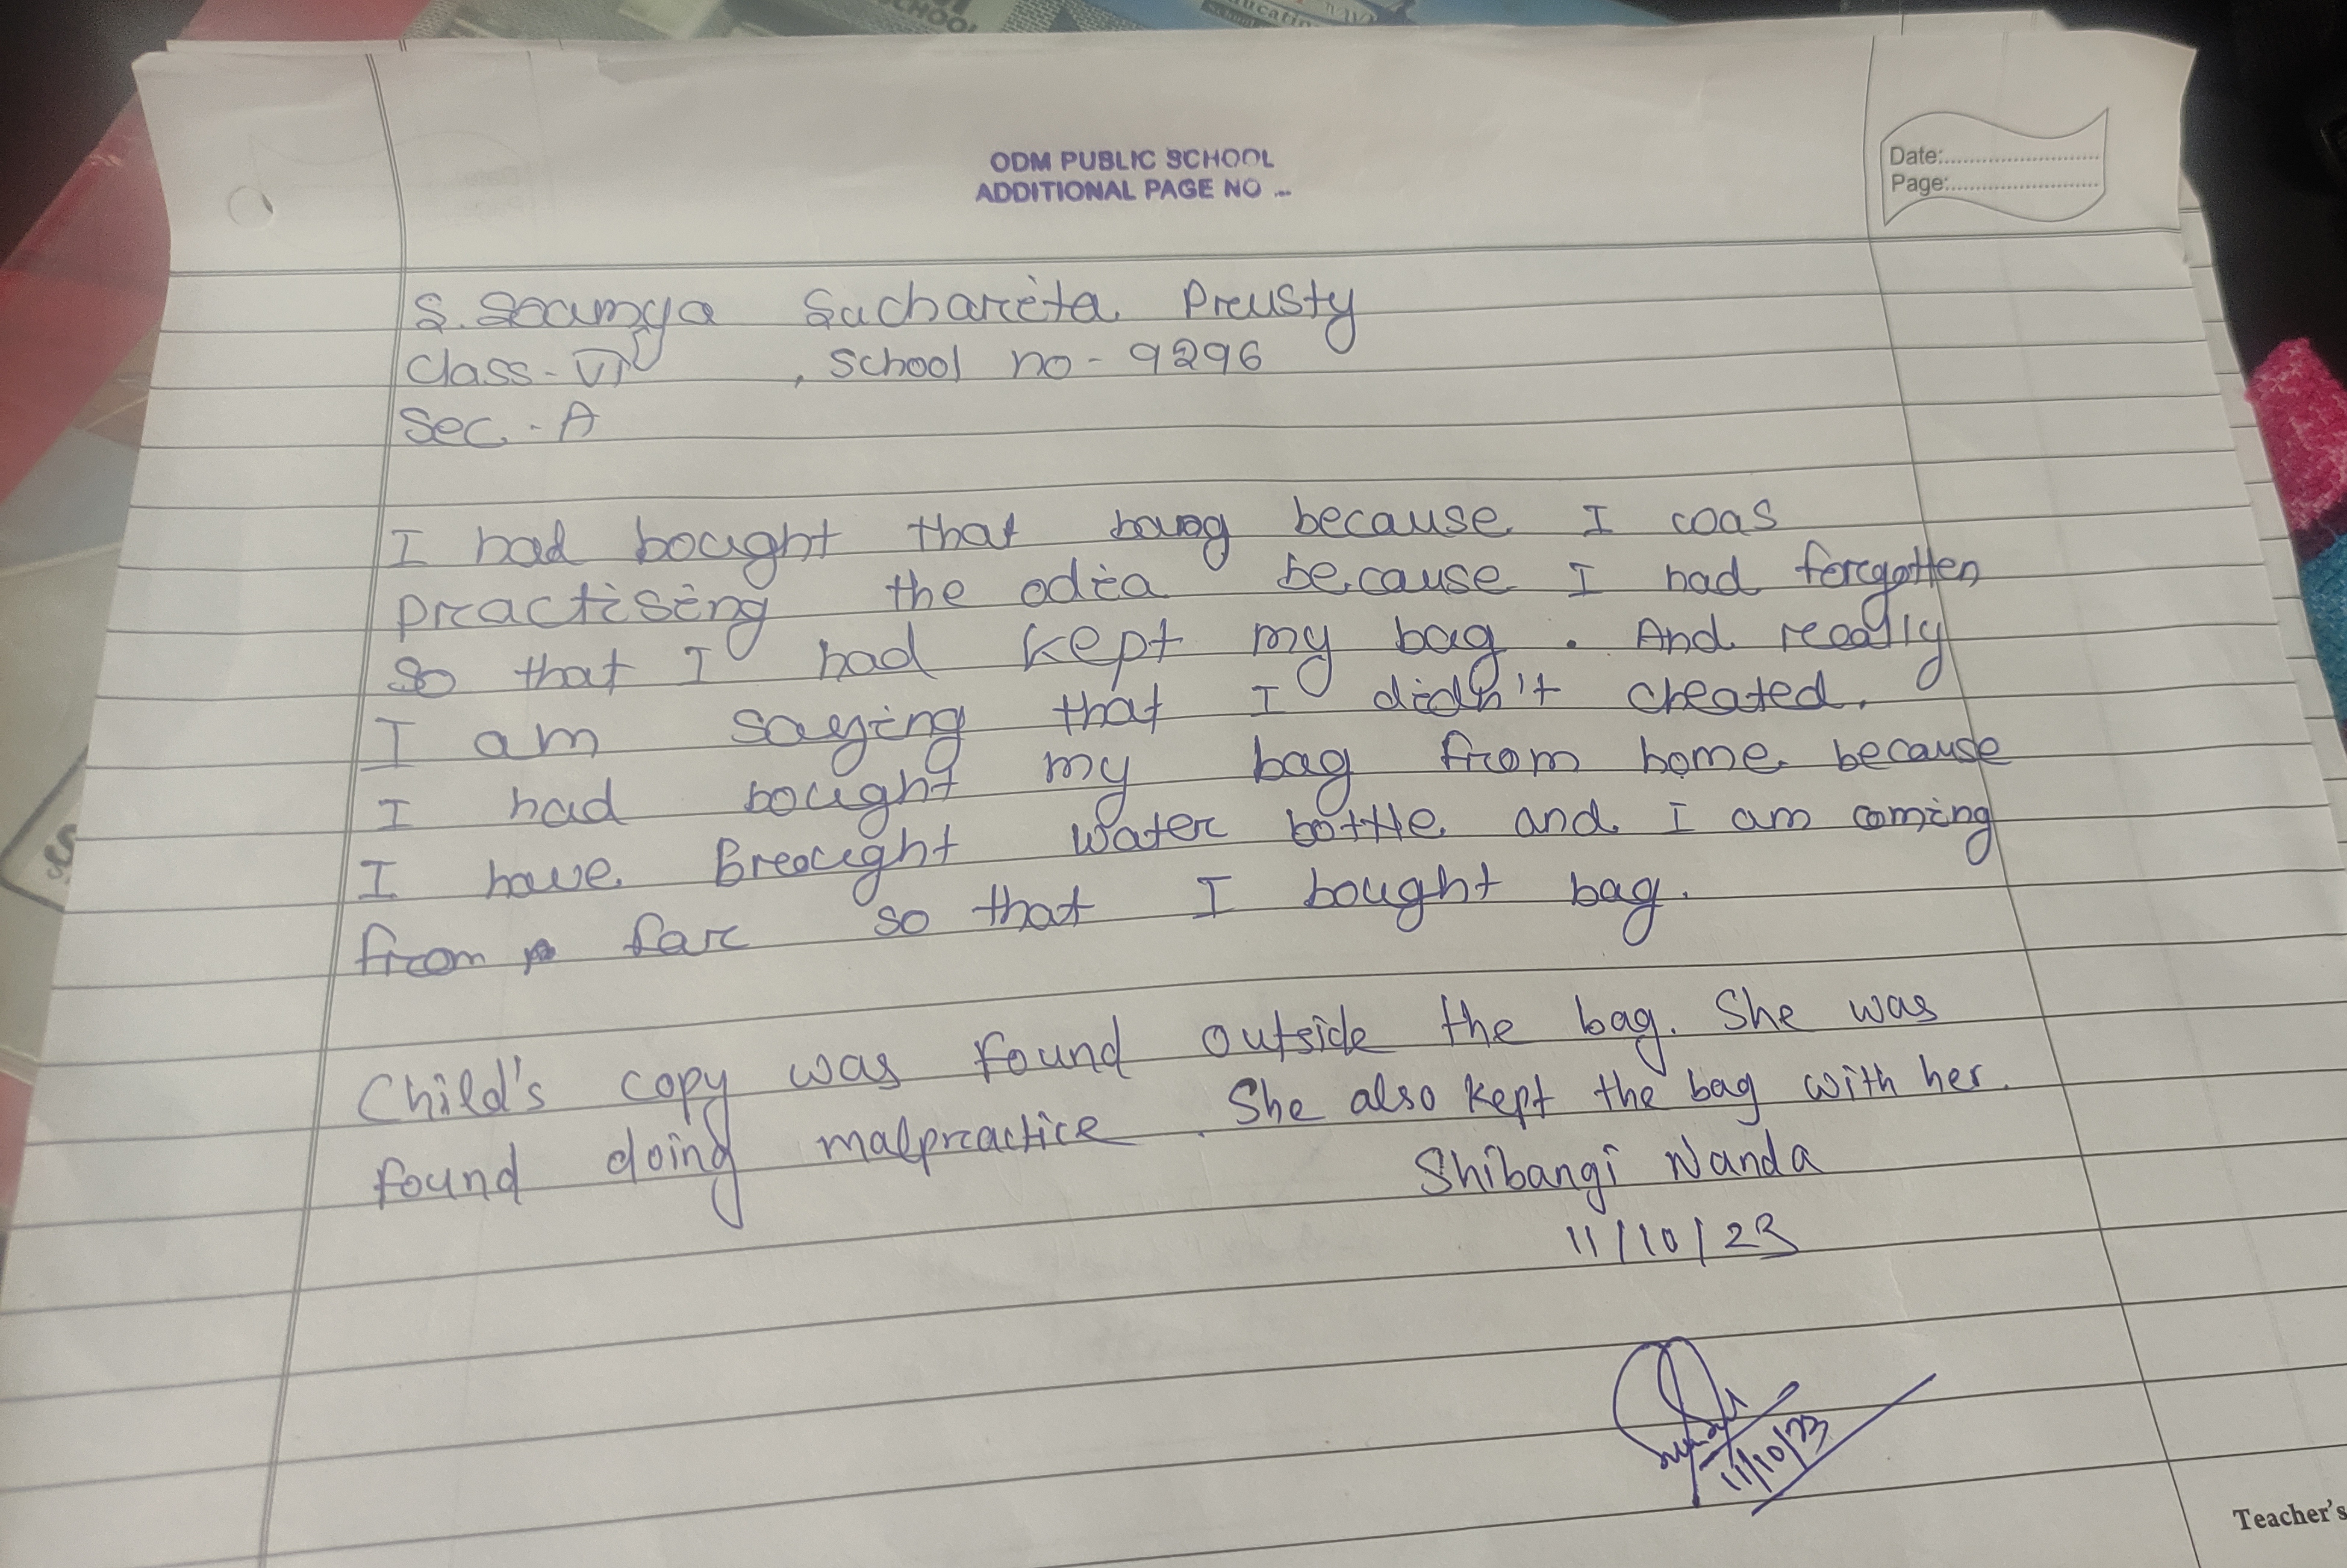 CHOOL
ucation
ODM PUBLIC SCHOOL
ADDITIONAL PAGE NO ...
Date:
Page:
S. Soumya Sucharita Prusty
Class - VI , School no - 9296
Sec. - A
I had bought that bag because I was
practising the odia because I had forgotten
so that I had kept my bag . And really
I am saying that I didn't cheated.
I had bought my bag from home because
I have Brought water bottle and I am coming
from far so that I bought bag.
Child's copy was found outside the bag. She was
found doing malpractice . She also kept the bag with her.
Shibangi Nanda
11/10/23
11/10/23
Teacher's